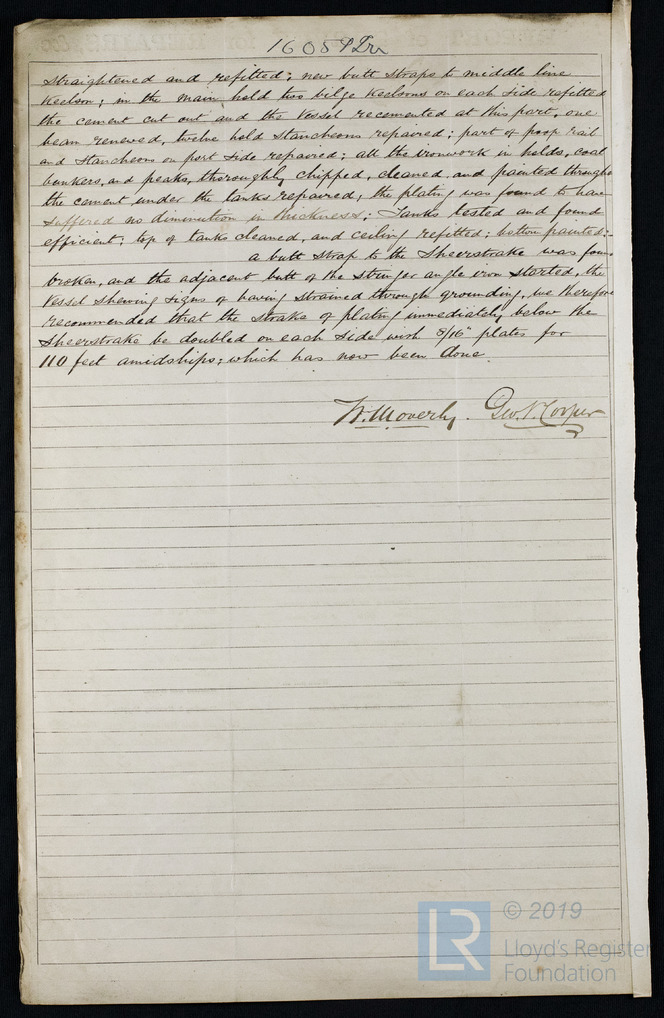 1605 Irn
straightened and refitted; new butt straps to middle line
keelson; in the main hold two bilge keelsons on each side refitted
the cement cut out and the vessel recemented at this part, one
beam renewed, twelve hold stancheons repaired; part of poop rail
and stancheons on port side repaired; all the ironwork in holds, coal
bunkers, and peaks, thoroughly chipped, cleaned, and painted through
the cement under the tanks repaired, the plating was found to have
suffered no diminution in thickness; Tanks tested and found
efficient; top of tanks cleaned, and ceiling refitted; bottom painted:
a butt strap to the Sheerstrake was foun
broken, and the adjacent butt of the stringer angle iron started, the
vessel shewing signs of having strained through grounding, we therefore
recommended that the strake of plating immediately below the
Sheerstrake be doubled on each side with 8/16" plates for
110 feet amidships; which has now been done
W. Moverly. Geo. Cooper
LR © 2019
Lloyd's Register
Foundation